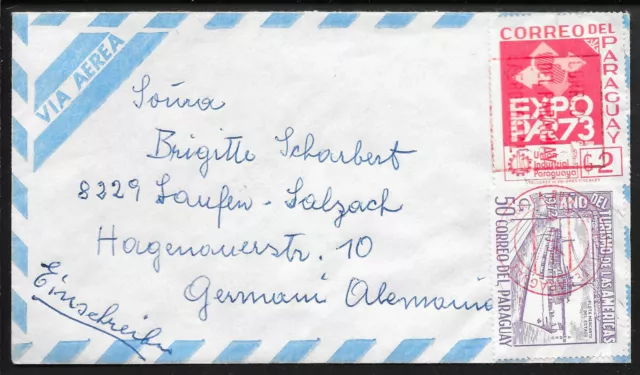 VIA AEREA
Soüra
Brigitte Scharbert
8229 Laufen-Salzach
Hagenauerstr. 10
Germani Alemania
Einschreiben
CORREO DEL PARAGUAY
EXPO
PAR 73
Unión
Industrial
Paraguaya
₲2
AÑO DEL TURISMO DE LAS AMERICAS
1972
50 CORREO DEL PARAGUAY
FLOTA MERCANTE
DEL ESTADO